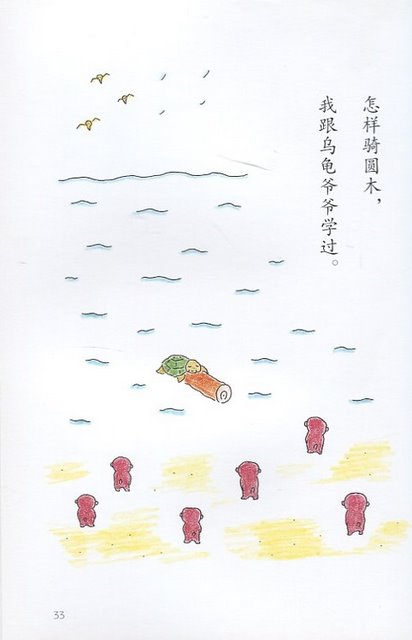 怎样骑圆木，
我跟乌龟爷爷学过。
33